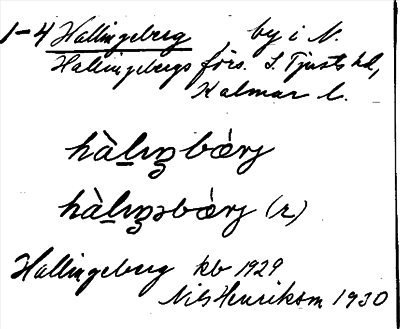 1-4 Hallingeberg by i N.
Hallingebergs förs. S. Tjusts hd,
Kalmar l.
hàlıŋbárj
hàlıŋəbárj (r)
Hallingeberg kb 1929
Nils Henrikson 1930